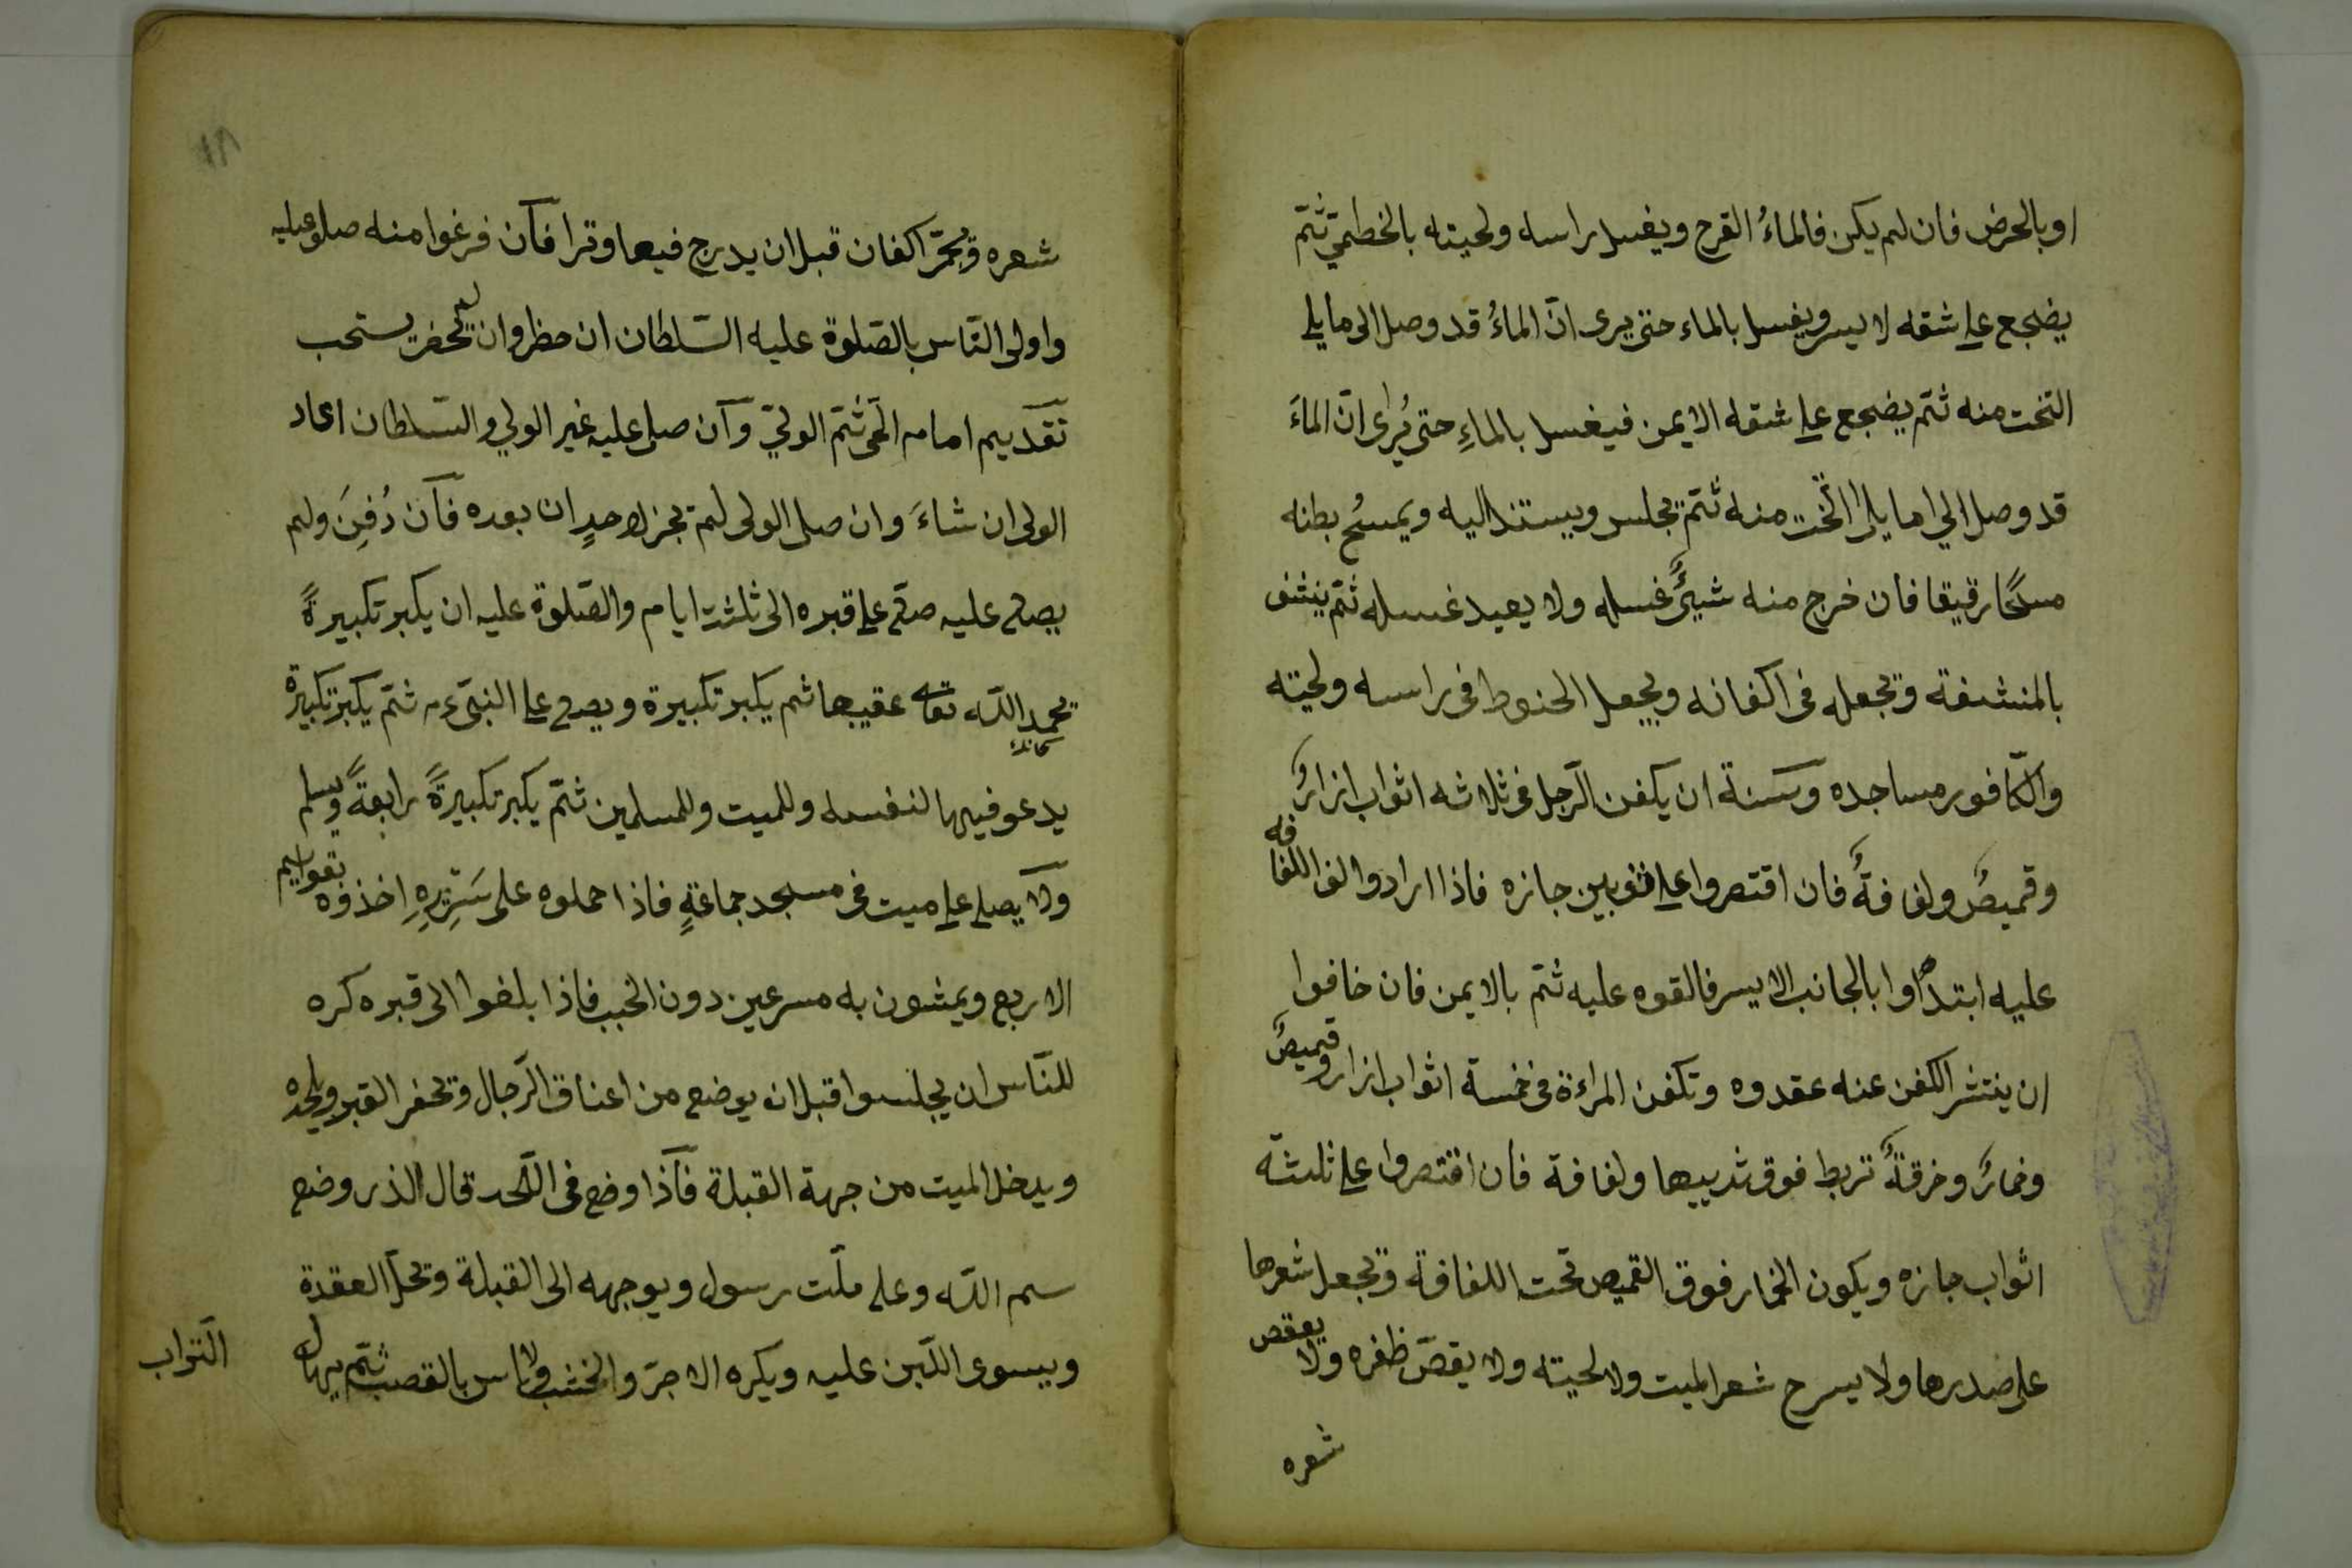 او بالحرض فان لم يكن فالماءُ القرح ويغسل راسه ولحيته بالخطميّ ثمّ
يضجع على شقه لا يسر ويغسل بالماء حتى يرى انّ الماءُ قد وصل الى ما يلى
التخت منه ثمّ يضجع على شقه الايمن فيغسل بالماءِ حتى يُرى انّ الماءَ
قد وصل الي ما يلى التّخت منه ثمّ يجلس ويستند اليه ويمسُح بطنه
مسحًا رقيقا فان خرج منه شيئٌ غسله ولا يعيد غسله ثمّ ينشف
بالمنشفة ويجعله فى اكفانه ويجعل الحنوط فى راسه ولحيته
والكّافور مساجده وسنة ان يكفن الرّجل فى ثلاثه اثواب ازارٌ و
وقميصٌ ولفافةٌ فان اقتصروا على ثوبين جازه فاذا ارادوا لف اللفافه
عليه ابتدأوا بالجانب الايسر فالقوه عليه ثمّ بالايمن فان خافوا
ان ينتشر الكفن عنه عقدوه وتكفن المراءة فى خمسة اثواب ازار وقميصٌ
وخمارٌ وخرقةٌ تربط فوق ثدييها ولفافة فان اقتصروا على ثلثة
اثواب جازه ويكون الخمار فوق القميص تحت اللفافة ويجعل شعرها
على صدرها ولا يسرح شعر الميت ولا لحيته ولا يقصّ ظفره ولا يعقص
شعره
١٨
شعره ويجمّر اكفان قبل ان يدرج فيها وترا فان فرغوا منه صلو عليه
واولى النّاس بالصّلوة عليه السّلطان ان حظر وان لم يحضر يستحب
تقديم امام الحى ثمّ الوليّ وان صلى عليه غير الولي والسّلطان اعاد
الولى ان شاءَ وان صلى الولى لم يجز لاحدٍ ان بعده فان دُفِنَ ولم
يصلى عليه صلّى على قبره الى ثلثة ايام والصّلوة عليه ان يكبر تكبيرةً
يحمد الله تعا عقيبها ثم يكبر تكبيرة ويصلى على النبىّ ءم ثمّ يكبر تكبيرة
يدعو فيها لنفسه وللميت وللمسلمين ثمّ يكبر تكبيرةً رابعةً ويسلم
ولا يصلى على ميت فى مسجد جماعةٍ فاذا حملوه على سَرِيرِهِ اخذوه بقوايم
الاربع ويمشون به مسرعين دون الخبب فاذا بلغوا الى قبره كره
للنّاس ان يجلسوا قبل ان يوضع من اعناق الرّجال ويحفر القبر ويلحده
ويدخل الميت من جهة القبلة فاذا وضع فى اللّحد قال الذى وضع
بسم الله وعلى ملّت رسول ويوجهه الى القبلة ويحلّ العقدة
ويسوى اللّبن عليه ويكره الاجرّ والخشب ولا باس بالقصب ثمّ يهال
التّراب